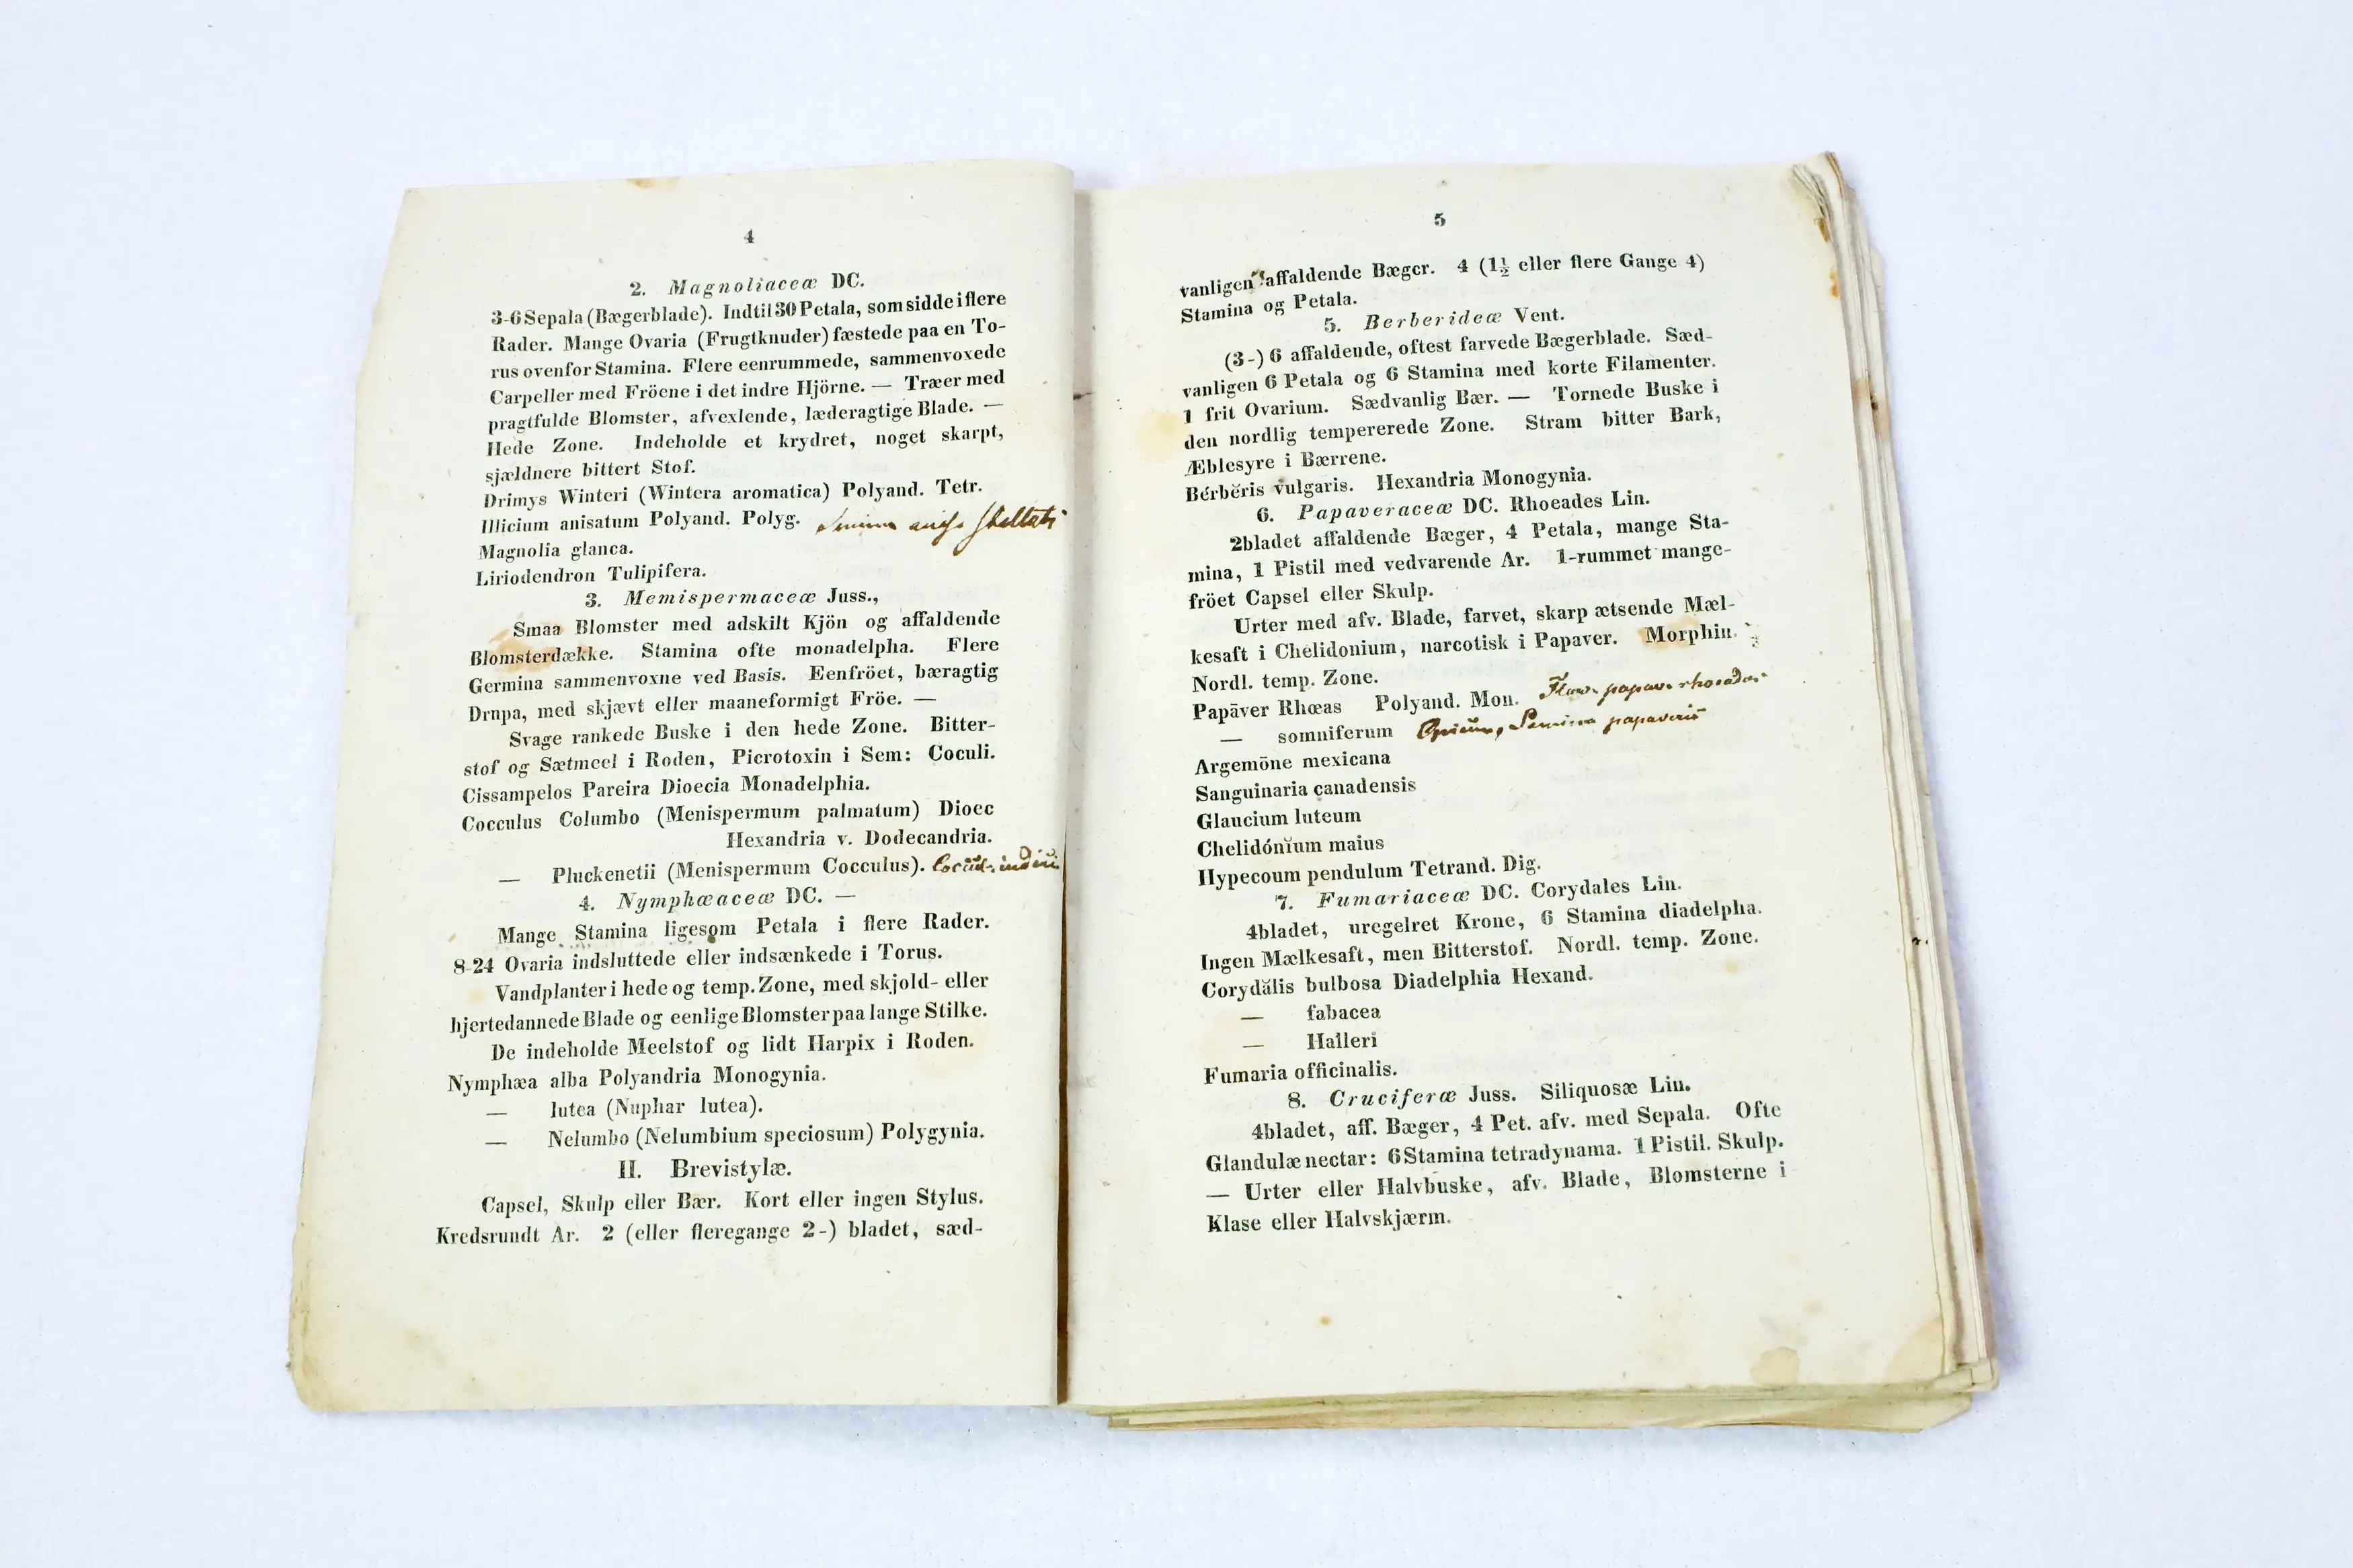 4
2. Magnoliaceæ DC.
3-6 Sepala (Bægerblade). Indtil 30 Petala, som sidde i flere
Rader. Mange Ovaria (Frugtknuder) fæstede paa en To-
rus ovenfor Stamina. Flere eenrummede, sammenvoxede
Carpeller med Fröene i det indre Hjörne. — Træer med
pragtfulde Blomster, afvexlende, læderagtige Blade. —
Hede Zone. Indeholde et krydret, noget skarpt,
sjældnere bittert Stof.
Drimys Winteri (Wintera aromatica) Polyand. Tetr.
Illicium anisatum Polyand. Polyg. Semina anisi stellati
Magnolia glanca.
Liriodendron Tulipifera.
3. Memispermaceæ Juss.,
Smaa Blomster med adskilt Kjön og affaldende
Blomsterdække. Stamina ofte monadelpha. Flere
Germina sammenvoxne ved Basis. Eenfröet, bæragtig
Drnpa, med skjævt eller maaneformigt Fröe. —
Svage rankede Buske i den hede Zone. Bitter-
stof og Sætmeel i Roden, Picrotoxin i Sem: Coculi.
Cissampelos Pareira Dioecia Monadelphia.
Cocculus Columbo (Menispermum palmatum) Dioec
Hexandria v. Dodecandria.
— Pluckenetii (Menispermum Cocculus). Coccul. indici
4. Nymphæaceæ DC. —
Mange Stamina ligesom Petala i flere Rader.
8-24 Ovaria indsluttede eller indsænkede i Torus.
Vandplanter i hede og temp. Zone, med skjold- eller
hjertedannede Blade og eenlige Blomster paa lange Stilke.
De indeholde Meelstof og lidt Harpix i Roden.
Nymphæa alba Polyandria Monogynia.
— lutea (Nuphar lutea).
— Nelumbo (Nelumbium speciosum) Polygynia.
II. Brevistylæ.
Capsel, Skulp eller Bær. Kort eller ingen Stylus.
Kredsrundt Ar. 2 (eller fleregange 2-) bladet, sæd-
5
vanligen affaldende Bæger. 4 (1½ eller flere Gange 4)
Stamina og Petala.
5. Berberideæ Vent.
(3-) 6 affaldende, oftest farvede Bægerblade. Sæd-
vanligen 6 Petala og 6 Stamina med korte Filamenter.
1 frit Ovarium. Sædvanlig Bær. — Tornede Buske i
den nordlig tempererede Zone. Stram bitter Bark,
Æblesyre i Bærrene.
Bérbĕris vulgaris. Hexandria Monogynia.
6. Papaveraceæ DC. Rhoeades Lin.
2bladet affaldende Bæger, 4 Petala, mange Sta-
mina, 1 Pistil med vedvarende Ar. 1-rummet mange-
fröet Capsel eller Skulp.
Urter med afv. Blade, farvet, skarp ætsende Mæl-
kesaft i Chelidonium, narcotisk i Papaver. Morphin.
Nordl. temp. Zone.
Papāver Rhœas Polyand. Mon. Flor. papav. rhoeados
— somniferum Opium, Semina papaveris
Argemōne mexicana
Sanguinaria canadensis
Glaucium luteum
Chelidónĭum maius
Hypecoum pendulum Tetrand. Dig.
7. Fumariaceæ DC. Corydales Lin.
4bladet, uregelret Krone, 6 Stamina diadelpha.
Ingen Mælkesaft, men Bitterstof. Nordl. temp. Zone.
Corydălis bulbosa Diadelphia Hexand.
— fabacea
— Halleri
Fumaria officinalis.
8. Cruciferæ Juss. Siliquosæ Lin.
4bladet, aff. Bæger, 4 Pet. afv. med Sepala. Ofte
Glandulæ nectar: 6 Stamina tetradynama. 1 Pistil. Skulp.
— Urter eller Halvbuske, afv. Blade, Blomsterne i
Klase eller Halvskjærm.